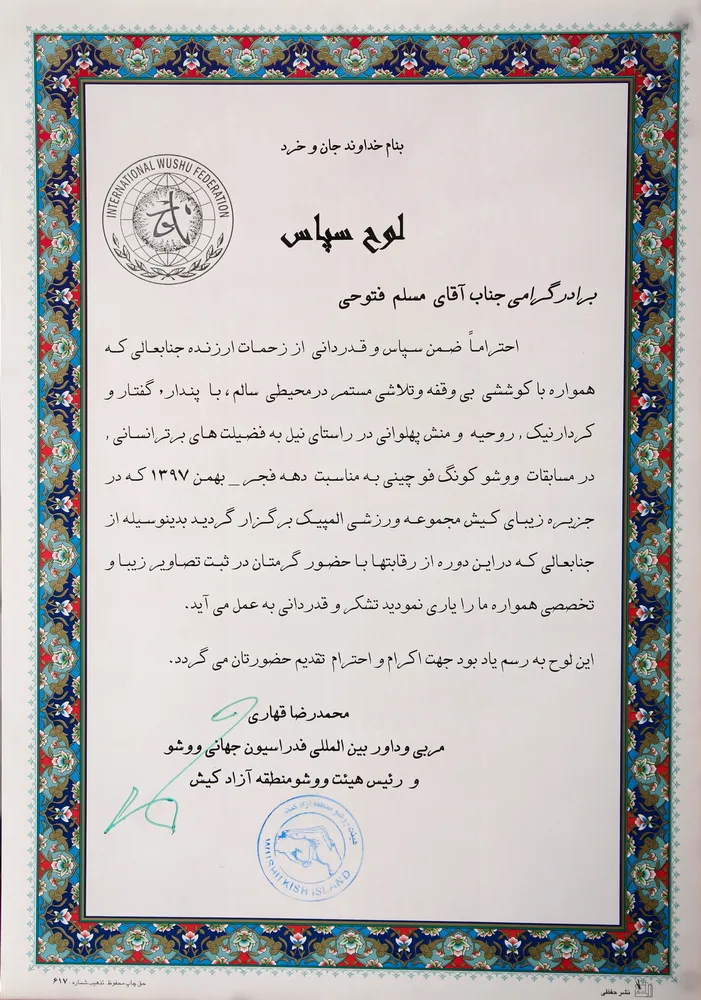 بنام خداوند جان و خرد
INTERNATIONAL WUSHU FEDERATION
لوح سپاس
برادرگرامی جناب آقای مسلم فتوحی
احتراماً ضمن سپاس و قدردانی از زحمات ارزنده جنابعالی که
همواره با کوششی بی وقفه وتلاشی مستمر درمحیطی سالم، با پندار, گفتار و
کردارنیک, روحیه و منش پهلوانی در راستای نیل به فضیلت های برترانسانی,
در مسابقات ووشو کونگ فو چینی به مناسبت دهه فجر _ بهمن ۱۳۹۷ که در
جزیره زیبای کیش مجموعه ورزشی المپیک برگزار گردید بدینوسیله از
جنابعالی که دراین دوره از رقابتها با حضور گرمتان در ثبت تصاویر زیبا و
تخصصی همواره ما را یاری نمودید تشکر و قدردانی به عمل می آید.
این لوح به رسم یاد بود جهت اکرام و احترام تقدیم حضورتان می گردد.
محمدرضا قهاری
مربی وداور بین المللی فدراسیون جهانی ووشو
و رئیس هیئت ووشومنطقه آزاد کیش
هیئت ووشو منطقه آزاد کیش
WUSHU KISH ISLAND
حق چاپ محفوظ. تذهیب شماره ۶۱۷
نشر حقیقی